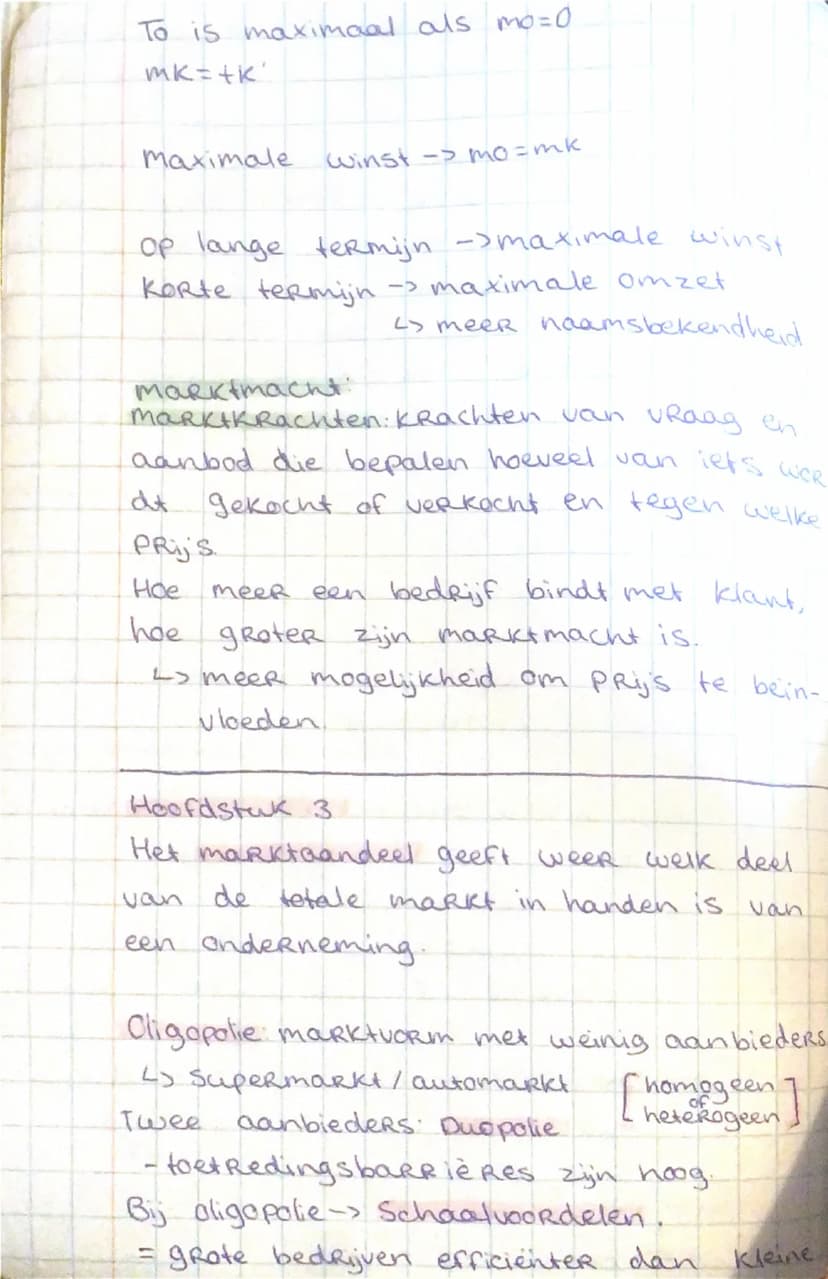 To is maximaal als mo=0
mk=tk'
maximale winst -> mo=mk
op lange termijn -> maximale winst
korte termijn -> maximale omzet
↳ meer naamsbekendheid
marktmacht:
marktkrachten: krachten van vraag en
aanbod die bepalen hoeveel van iets wor
dt gekocht of verkocht en tegen welke
prijs.
Hoe meer een bedrijf bindt met klant,
hoe groter zijn marktmacht is.
↳ meer mogelijkheid om prijs te bein-
vloeden.
Hoofdstuk 3
Het marktaandeel geeft weer welk deel
van de totale markt in handen is van
een onderneming.
Oligopolie: marktvorm met weinig aanbieders
↳ supermarkt / automarkt [homogeen of heterogeen]
Twee aanbieders: Duopolie
- toetredingsbarrières zijn hoog.
Bij oligopolie -> Schaalvoordelen.
= grote bedrijven efficiënter dan kleine